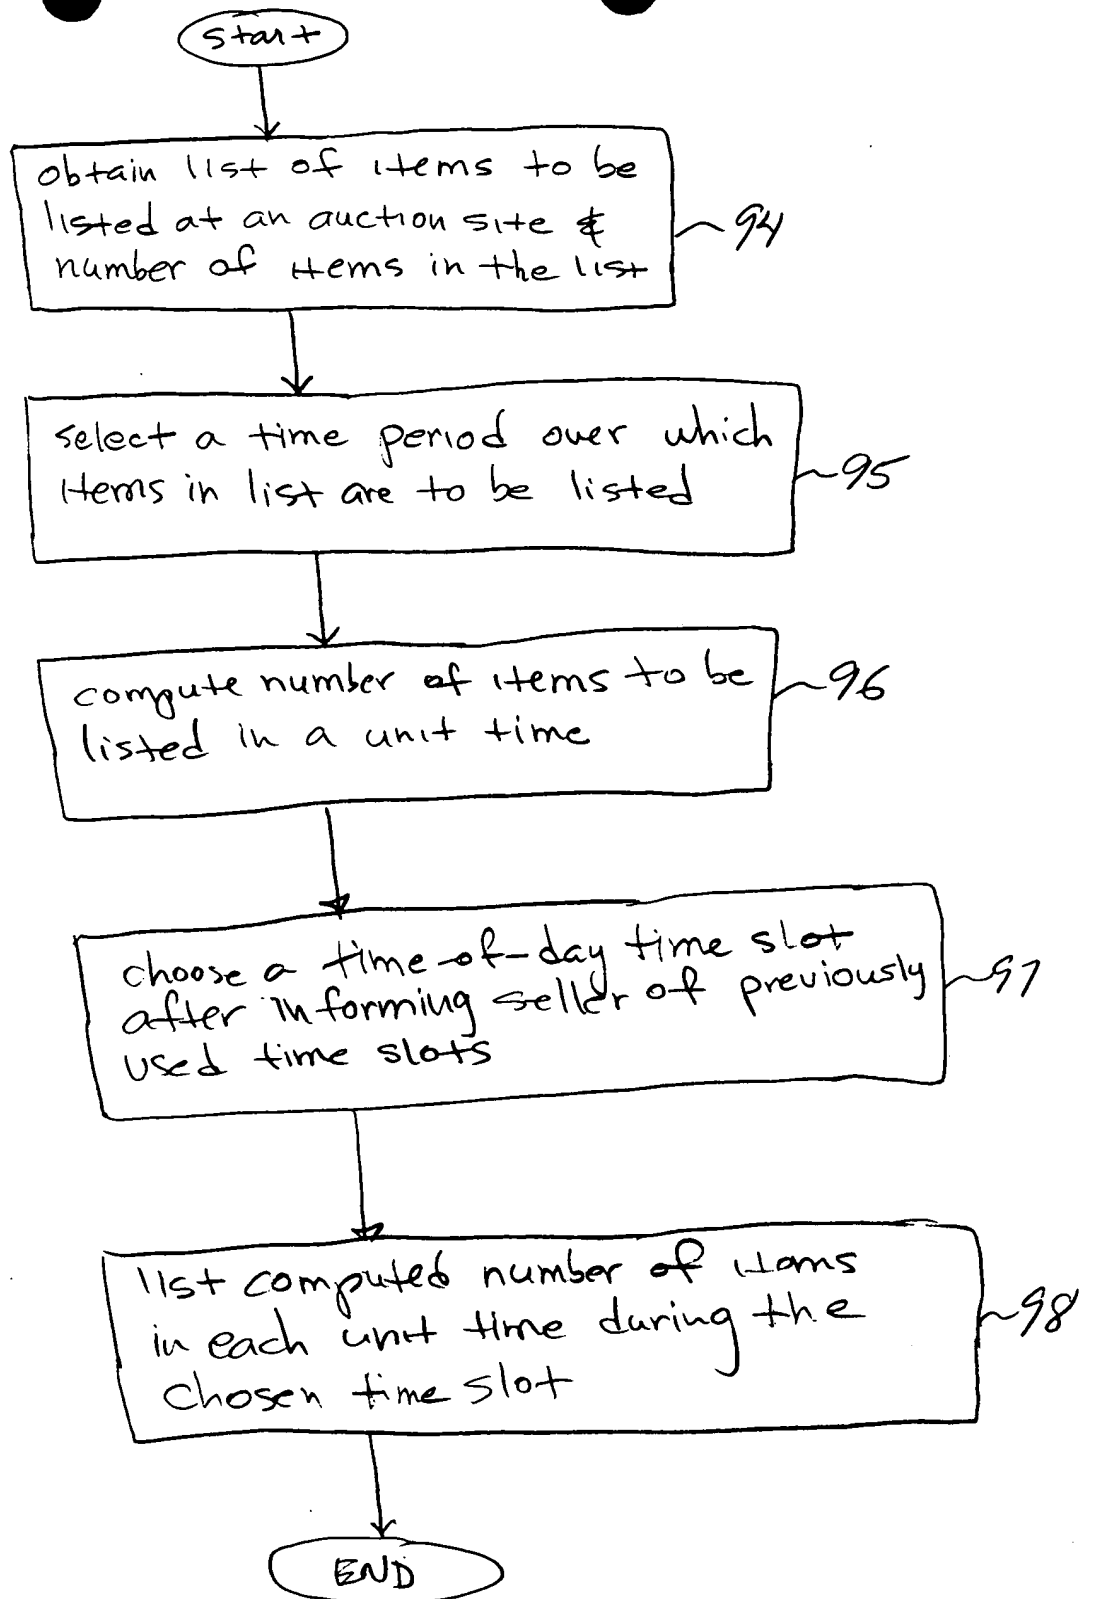 start
obtain list of items to be
listed at an auction site &
number of items in the list
94
select a time period over which
items in list are to be listed
95
compute number of items to be
listed in a unit time
96
choose a time-of-day time slot
after informing seller of previously
used time slots
97
list computed number of items
in each unit time during the
chosen time slot
98
END